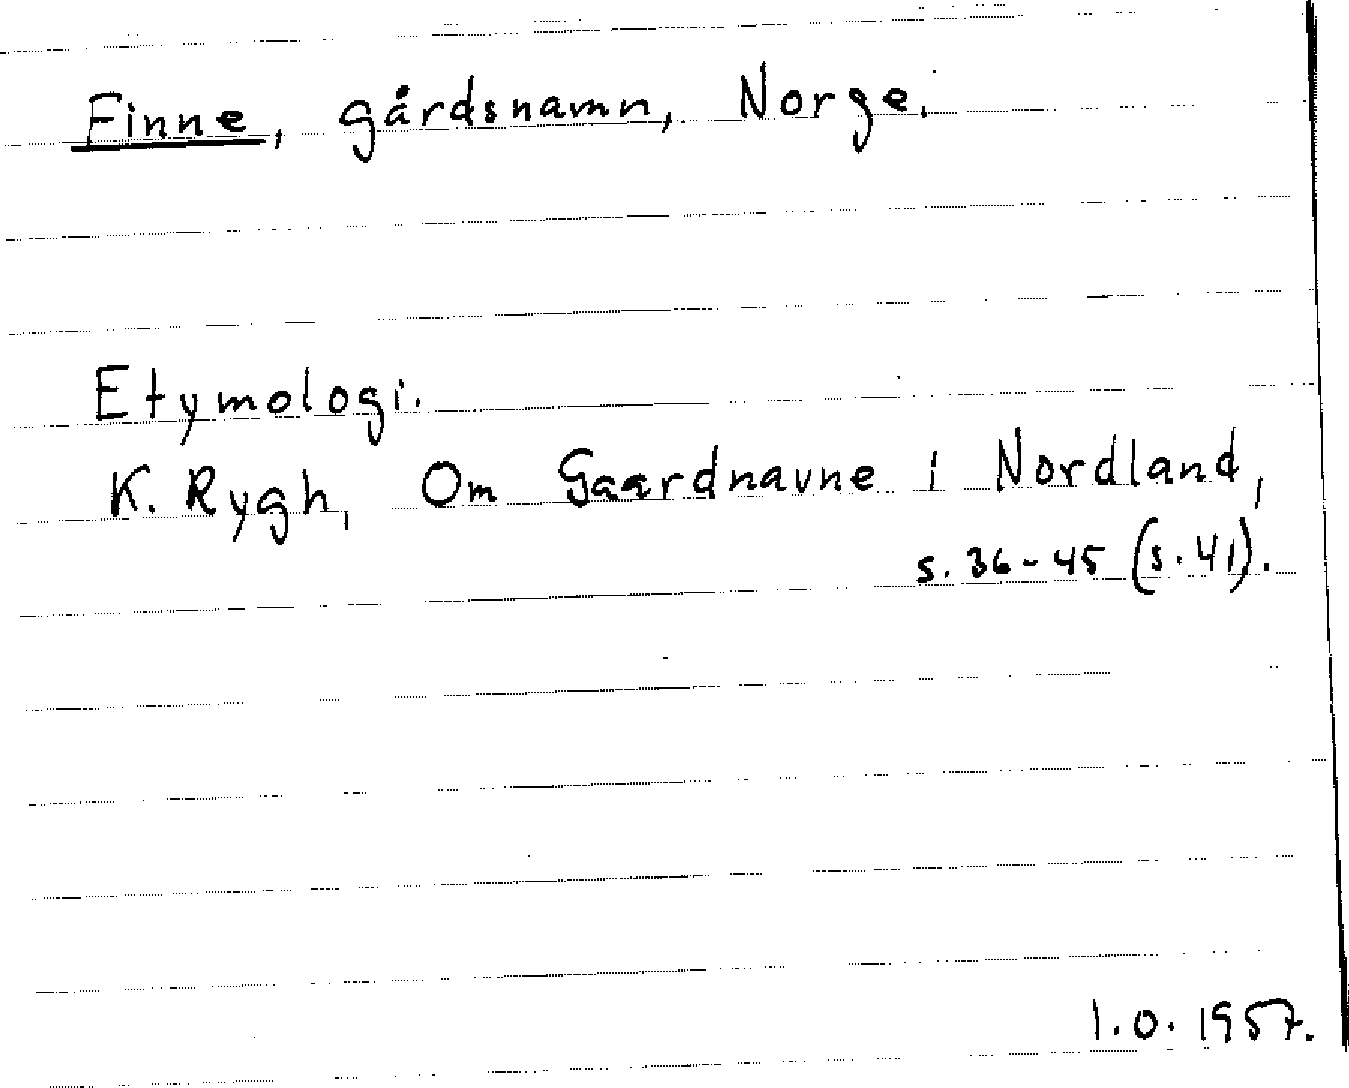 Finne, gårdsnamn, Norge.
Etymologi.
K. Rygh, Om Gaardnavne i Nordland,
s. 36-45 (s. 41).
1.0. 1957.